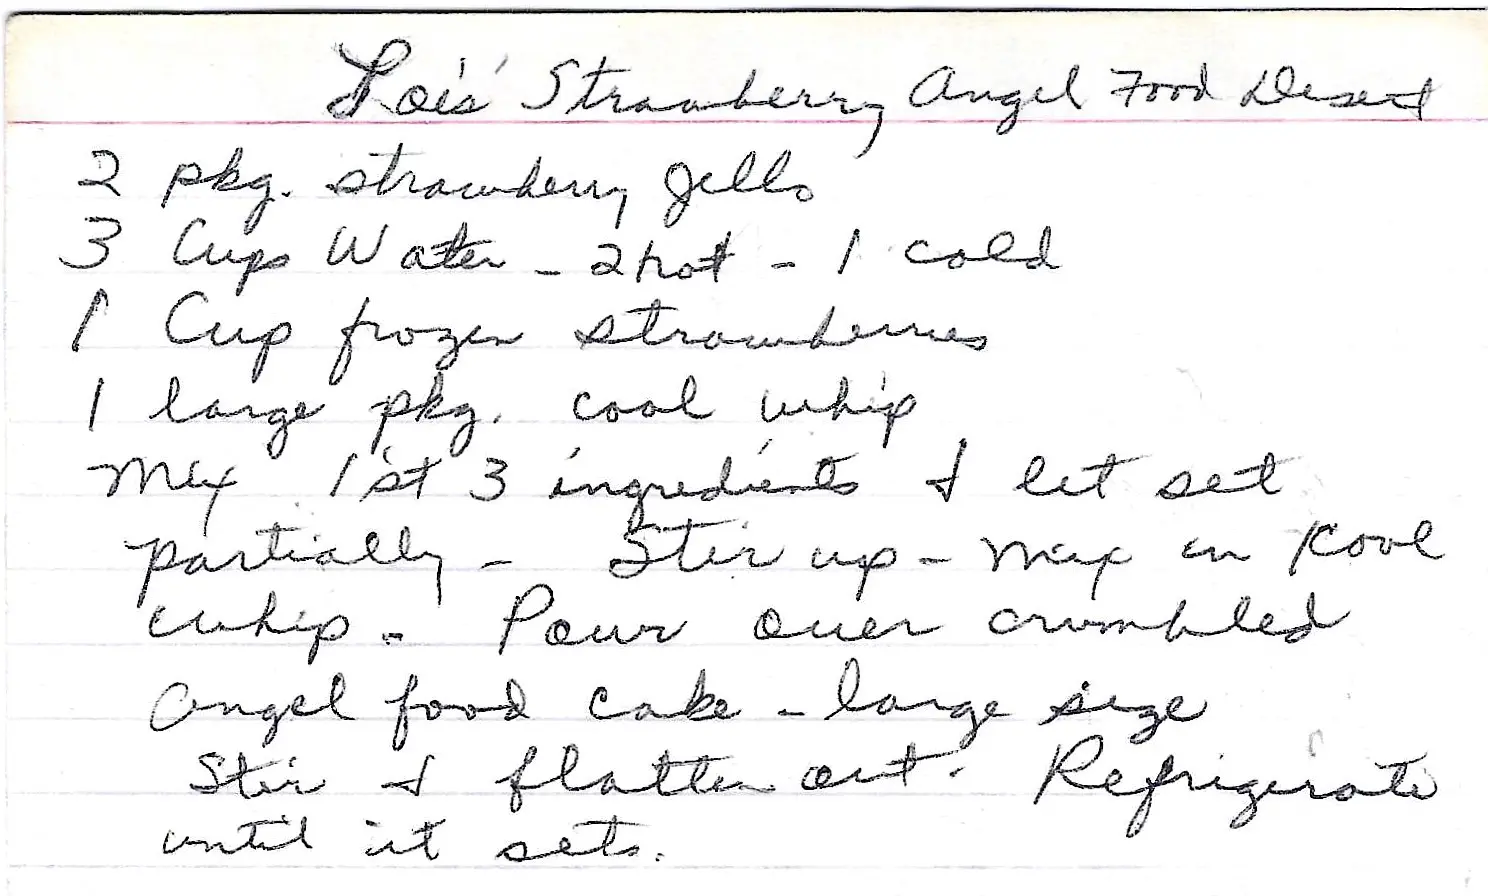 Lois' Strawberry Angel Food Desert
2 pkg. strawberry Jello
3 Cups Water - 2 hot - 1 cold
1 Cup frozen strawberries
1 large pkg. cool whip
Mix 1st 3 ingredients & let set
partially - Stir up - Mix in Kool
whip - Pour over crumbled
Angel food cake - large size
Stir & flatten out. Refrigerate
until it sets.